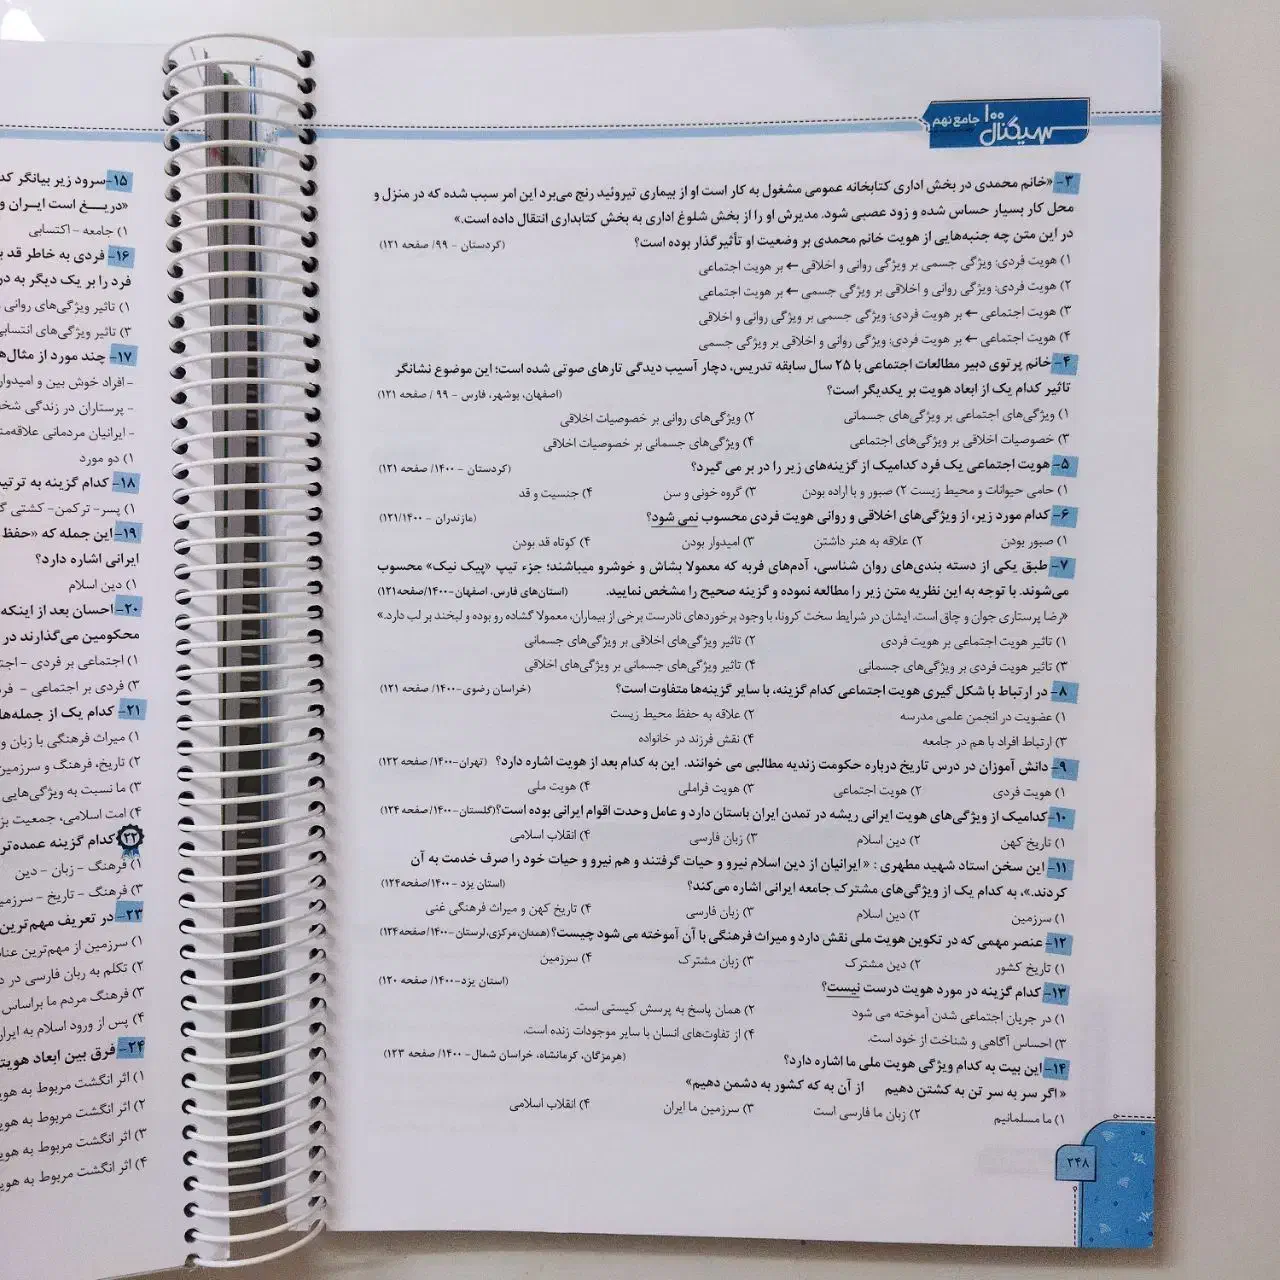 سیگنال ۱۰۰ جامع نهم
۳- «خانم محمدی در بخش اداری کتابخانه عمومی مشغول به کار است او از بیماری تیروئید رنج می‌برد این امر سبب شده که در منزل و
محل کار بسیار حساس شده و زود عصبی شود. مدیرش او را از بخش شلوغ اداری به بخش کتابداری انتقال داده است.»
در این متن چه جنبه‌هایی از هویت خانم محمدی بر وضعیت او تأثیرگذار بوده است؟ (کردستان - ۹۹/ صفحه ۱۲۱)
۱) هویت فردی: ویژگی جسمی بر ویژگی روانی و اخلاقی ← بر هویت اجتماعی
۲) هویت فردی: ویژگی روانی و اخلاقی بر ویژگی جسمی ← بر هویت اجتماعی
۳) هویت اجتماعی ← بر هویت فردی: ویژگی جسمی بر ویژگی روانی و اخلاقی
۴) هویت اجتماعی ← بر هویت فردی: ویژگی روانی و اخلاقی بر ویژگی جسمی
۴- خانم پرتوی دبیر مطالعات اجتماعی با ۲۵ سال سابقه تدریس، دچار آسیب دیدگی تارهای صوتی شده است؛ این موضوع نشانگر
تاثیر کدام یک از ابعاد هویت بر یکدیگر است؟ (اصفهان، بوشهر، فارس - ۹۹ / صفحه ۱۲۱)
۱) ویژگی‌های اجتماعی بر ویژگی‌های جسمانی ۲) ویژگی‌های روانی بر خصوصیات اخلاقی
۳) خصوصیات اخلاقی بر ویژگی‌های اجتماعی ۴) ویژگی‌های جسمانی بر خصوصیات اخلاقی
۵- هویت اجتماعی یک فرد کدامیک از گزینه‌های زیر را در بر می گیرد؟ (کردستان - ۱۴۰۰/ صفحه ۱۲۱)
۱) حامی حیوانات و محیط زیست ۲) صبور و با اراده بودن ۳) گروه خونی و سن ۴) جنسیت و قد
۶- کدام مورد زیر، از ویژگی‌های اخلاقی و روانی هویت فردی محسوب نمی شود؟ (مازندران - ۱۲۱/۱۴۰۰)
۱) صبور بودن ۲) علاقه به هنر داشتن ۳) امیدوار بودن ۴) کوتاه قد بودن
۷- طبق یکی از دسته بندی‌های روان شناسی، آدم‌های فربه که معمولا بشاش و خوشرو میباشند؛ جزء تیپ «پیک نیک» محسوب
می‌شوند. با توجه به این نظریه متن زیر را مطالعه نموده و گزینه صحیح را مشخص نمایید. (استان‌های فارس، اصفهان-۱۴۰۰/صفحه۱۲۱)
«رضا پرستاری جوان و چاق است. ایشان در شرایط سخت کرونا، با وجود برخوردهای نادرست برخی از بیماران، معمولا گشاده رو بوده و لبخند بر لب دارد.»
۱) تاثیر هویت اجتماعی بر هویت فردی ۲) تاثیر ویژگی‌های اخلاقی بر ویژگی‌های جسمانی
۳) تاثیر هویت فردی بر ویژگی‌های جسمانی ۴) تاثیر ویژگی‌های جسمانی بر ویژگی‌های اخلاقی
۸- در ارتباط با شکل گیری هویت اجتماعی کدام گزینه، با سایر گزینه‌ها متفاوت است؟ (خراسان رضوی-۱۴۰۰/ صفحه ۱۲۱)
۱) عضویت در انجمن علمی مدرسه ۲) علاقه به حفظ محیط زیست
۳) ارتباط افراد با هم در جامعه ۴) نقش فرزند در خانواده
۹- دانش آموزان در درس تاریخ درباره حکومت زندیه مطالبی می خوانند. این به کدام بعد از هویت اشاره دارد؟ (تهران-۱۴۰۰/ صفحه ۱۲۲)
۱) هویت فردی ۲) هویت اجتماعی ۳) هویت فراملی ۴) هویت ملی
۱۰- کدامیک از ویژگی‌های هویت ایرانی ریشه در تمدن ایران باستان دارد و عامل وحدت اقوام ایرانی بوده است؟(گلستان-۱۴۰۰/ صفحه ۱۲۴)
۱) تاریخ کهن ۲) دین اسلام ۳) زبان فارسی ۴) انقلاب اسلامی
۱۱- این سخن استاد شهید مطهری : « ایرانیان از دین اسلام نیرو و حیات گرفتند و هم نیرو و حیات خود را صرف خدمت به آن
کردند.»، به کدام یک از ویژگی‌های مشترک جامعه ایرانی اشاره می‌کند؟ (استان یزد - ۱۴۰۰/ صفحه۱۲۴)
۱) سرزمین ۲) دین اسلام ۳) زبان فارسی ۴) تاریخ کهن و میراث فرهنگی غنی
۱۲- عنصر مهمی که در تکوین هویت ملی نقش دارد و میراث فرهنگی با آن آموخته می شود چیست؟ (همدان،مرکزی،لرستان-۱۴۰۰/ صفحه۱۲۴)
۱) تاریخ کشور ۲) دین مشترک ۳) زبان مشترک ۴) سرزمین
۱۳- کدام گزینه در مورد هویت درست نیست؟ (استان یزد-۱۴۰۰/ صفحه ۱۲۰)
۱) در جریان اجتماعی شدن آموخته می شود ۲) همان پاسخ به پرسش کیستی است.
۳) احساس آگاهی و شناخت از خود است. ۴) از تفاوت‌های انسان با سایر موجودات زنده است.
۱۴- این بیت به کدام ویژگی هویت ملی ما اشاره دارد؟ (هرمزگان، کرمانشاه، خراسان شمال-۱۴۰۰/ صفحه ۱۲۳)
« اگر سر به سر تن به کشتن دهیم از آن به که کشور به دشمن دهیم»
۱) ما مسلمانیم ۲) زبان ما فارسی است ۳) سرزمین ما ایران ۴) انقلاب اسلامی
۲۴۸
۱۵- سرود زیر بیانگر
«دریـــغ است ایـران و
۱) جامعه - اکتسابی
۱۶- فردی به خاطر قد
فرد را بر یک دیگر به
۱) تاثیر ویژگی‌های روانی
۳) تاثیر ویژگی‌های انتسابی
۱۷- چند مورد از مثال‌ها
- افراد خوش بین و امیدوار
- پرستاران در زندگی
- ایرانیان مردمانی
۱) دو مورد
۱۸- کدام گزینه به
۱) پسر- ترکمن- کشتی
۱۹- این جمله که «حفظ
ایرانی اشاره دارد؟
۱) دین اسلام
۲۰- احسان بعد از اینکه
محکومین می‌گذارند در
۱) اجتماعی بر فردی -
۳) فردی بر اجتماعی -
۲۱- کدام یک از
۱) میراث فرهنگی با زبان و
۲) تاریخ، فرهنگ و سرزمین
۳) ما نسبت به ویژگی‌هایی
۴) امت اسلامی، جمعیت
۲۲ کدام گزینه
۱) فرهنگ - زبان - دین
۳) فرهنگ - تاریخ -
۲۳- در تعریف مهم‌ترین
۱) سرزمین از مهم‌ترین
۲) تکلم به زبان فارسی در
۳) فرهنگ مردم ما براساس
۴) پس از ورود اسلام به
۲۴- فرق بین ابعاد
۱) اثر انگشت مربوط به
۲) اثر انگشت مربوط به
۳) اثر انگشت مربوط به
۴) اثر انگشت مربوط به